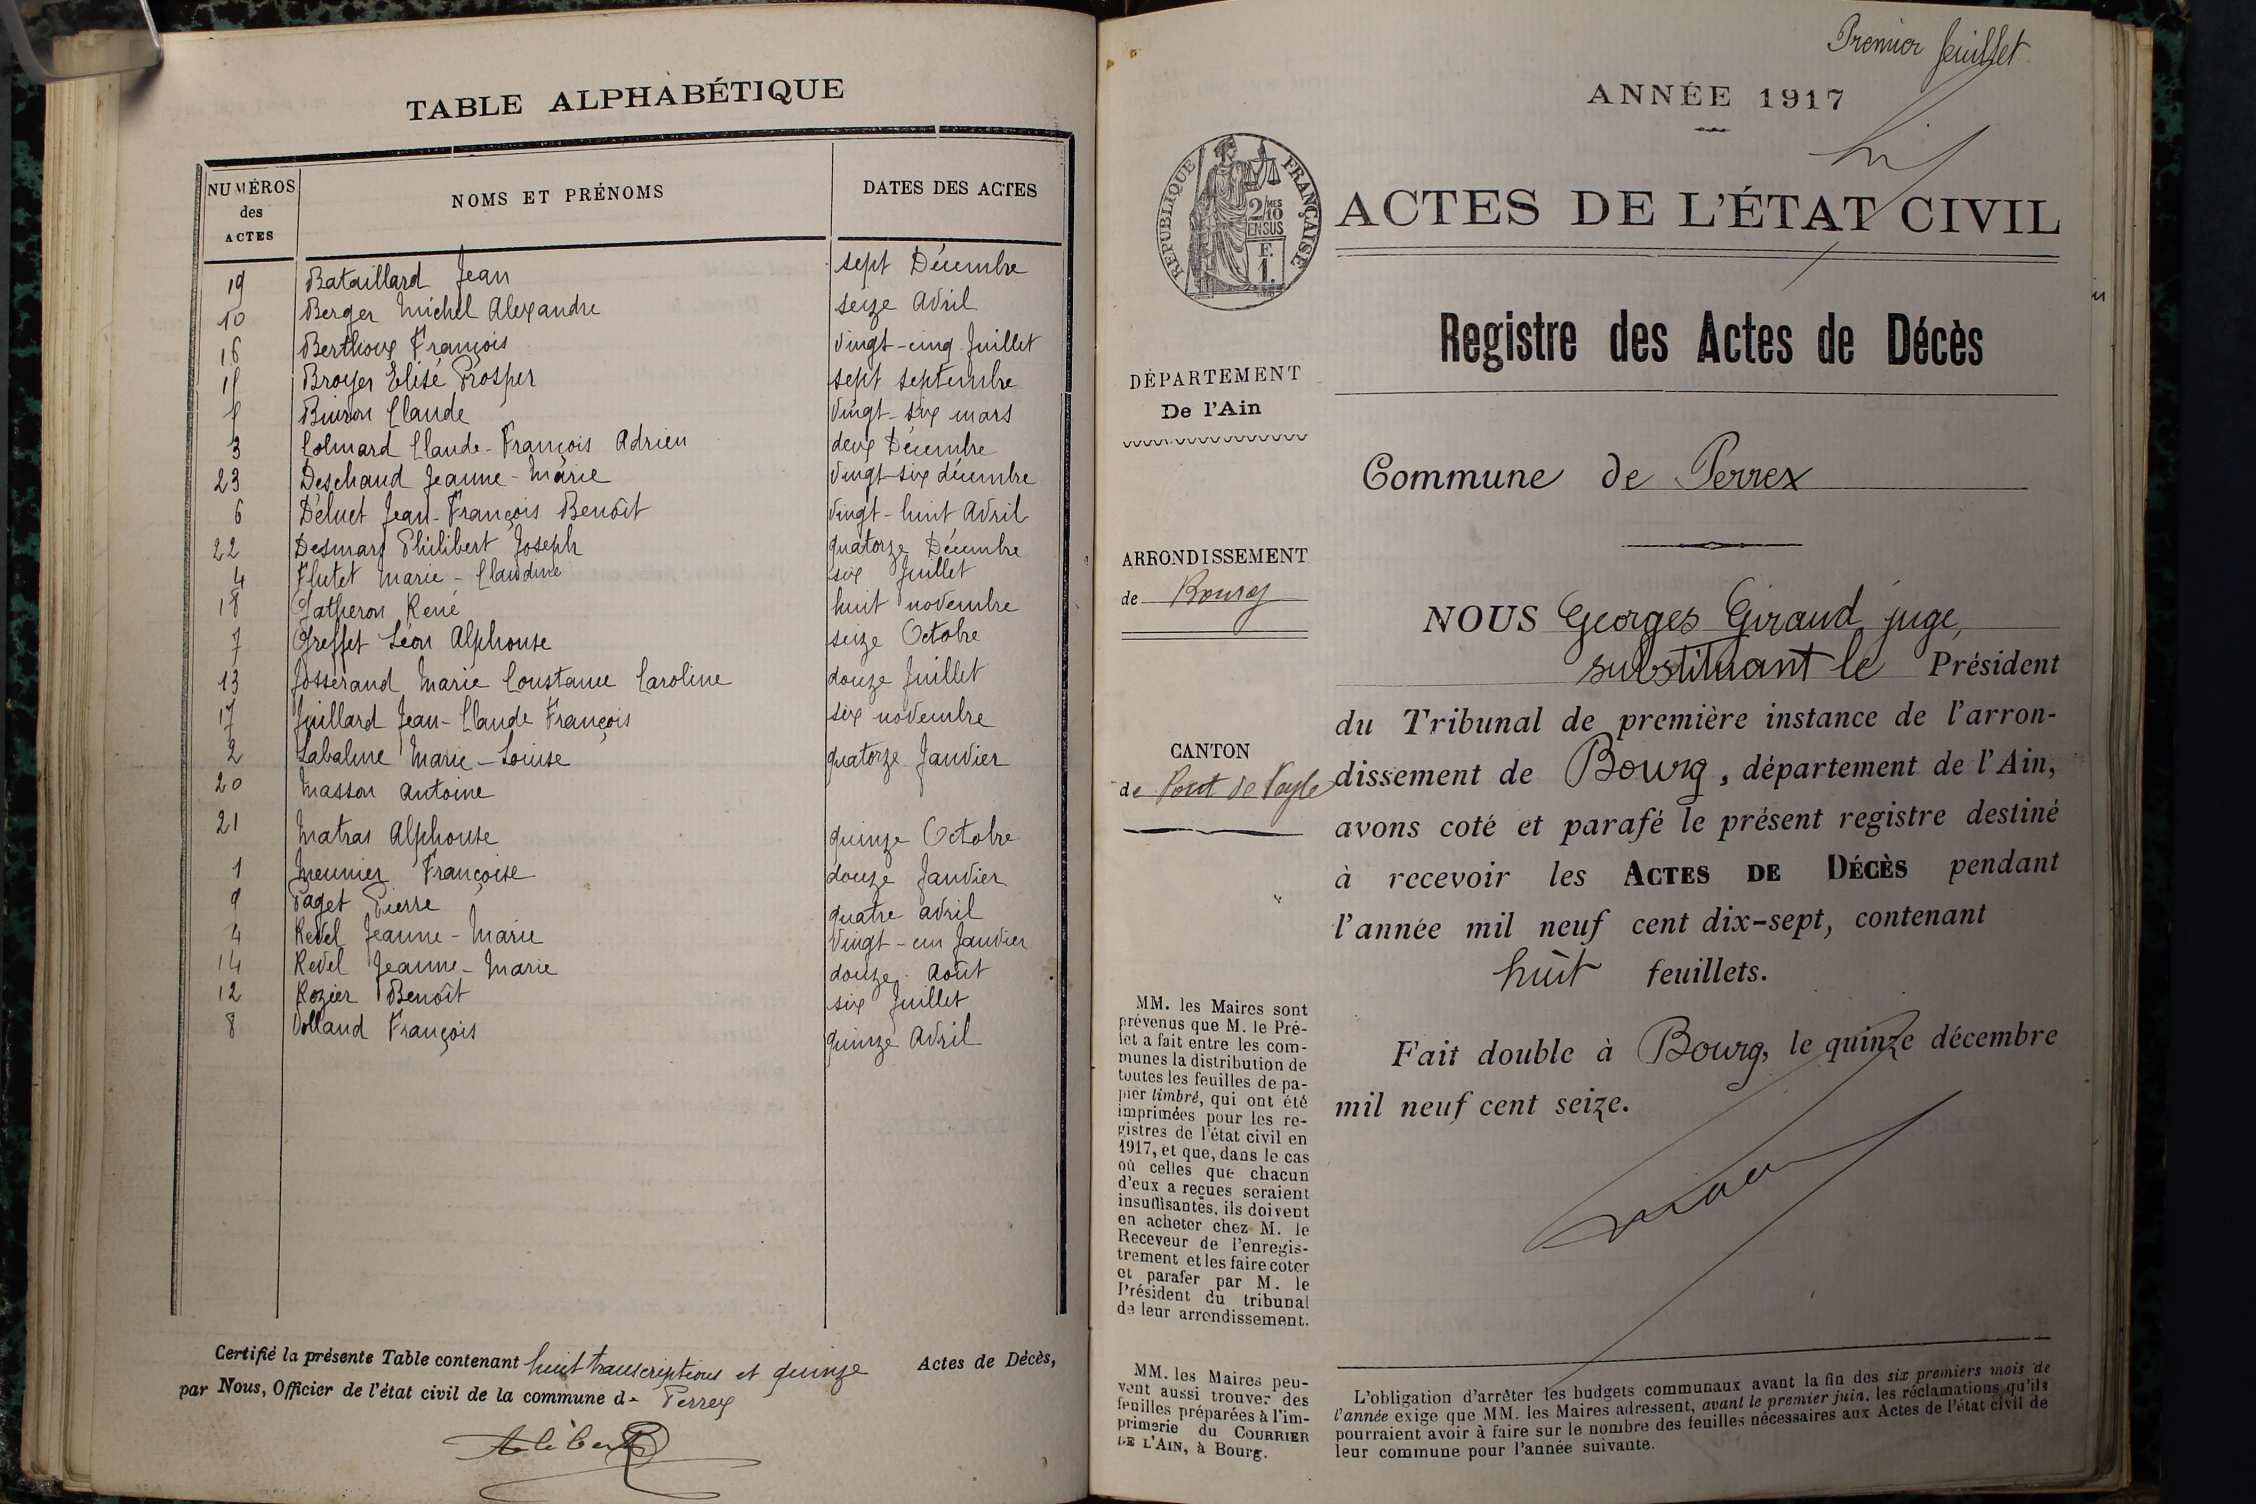 TABLE ALPHABÉTIQUE
NUMÉROS des ACTES
NOMS ET PRÉNOMS
DATES DES ACTES
19 Bataillard Jean sept Décembre
10 Berger Michel Alexandre seize Avril
16 Berthoux François vingt-cinq Juillet
Broyer Elisé Prosper sept septembre
Buiron Claude vingt-six mars
3 Colmard Claude-François Adrien deux Décembre
23 Deschaud Jeanne-Marie vingt-six décembre
6 Déluet Jean-François Benoît vingt-huit Avril
22 Desmary Philibert Joseph quatorze Décembre
4 Flutet Marie-Claudine six Juillet
18 Gatheron René huit novembre
7 Greffet Léon Alphonse seize Octobre
13 Josserand Marie Constance Caroline douze Juillet
17 Juillard Jean-Claude François six novembre
2 Labalme Marie-Louise quatorze Janvier
20 Masson Antoine
21 Matras Alphonse quinze Octobre
1 Meunier Françoise douze Janvier
9 Paget Pierre quatre avril
4 Revel Jeanne-Marie vingt-un Janvier
14 Revel Jeanne-Marie douze Août
12 Rozier Benoît six Juillet
8 Volland François quinze Avril
Certifié la présente Table contenant huit transcriptions et quinze Actes de Décès,
par Nous, Officier de l'état civil de la commune de Perrex
Premier feuillet
ANNÉE 1917
RÉPUBLIQUE FRANÇAISE
2/10 MES
EN SUS
E
1.
ACTES DE L'ÉTAT CIVIL
Registre des Actes de Décès
DÉPARTEMENT
De l'Ain
Commune de Perrex
ARRONDISSEMENT
de Bourg
NOUS Georges Giraud, juge,
substituant le Président
du Tribunal de première instance de l'arron-
dissement de Bourg, département de l'Ain,
avons coté et parafé le présent registre destiné
à recevoir les ACTES DE DÉCÈS pendant
l'année mil neuf cent dix-sept, contenant
huit feuillets.
Fait double à Bourg, le quinze décembre
mil neuf cent seize.
CANTON
de Pont de Veyle
MM. les Maires sont
prévenus que M. le Pré-
fet a fait entre les com-
munes la distribution de
toutes les feuilles de pa-
pier timbré, qui ont été
imprimées pour les re-
gistres de l'état civil en
1917, et que, dans le cas
où celles que chacun
d'eux a reçues seraient
insuffisantes, ils doivent
en acheter chez M. le
Receveur de l'enregis-
trement et les faire coter
et parafer par M. le
Président du tribunal
de leur arrondissement.
MM. les Maires peu-
vent aussi trouver des
feuilles préparées à l'im-
primerie du COURRIER
DE L'AIN, à Bourg.
L'obligation d'arrêter les budgets communaux avant la fin des six premiers mois de
l'année exige que MM. les Maires adressent, avant le premier juin, les réclamations qu'ils
pourraient avoir à faire sur le nombre des feuilles nécessaires aux Actes de l'état civil de
leur commune pour l'année suivante.